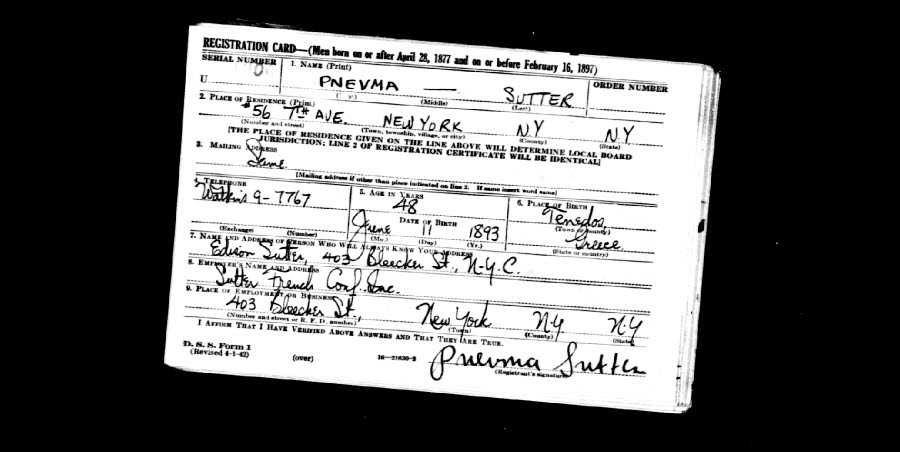 REGISTRATION CARD—(Men born on or after April 28, 1877 and on or before February 16, 1897)
SERIAL NUMBER
1. NAME (Print)
ORDER NUMBER
U
PNEVMA — SUTTER
(Middle) (Last)
2. PLACE OF RESIDENCE (Print)
#56 7TH AVE. NEW YORK NY NY
(Number and street) (Town, township, village, or city) (County) (State)
[THE PLACE OF RESIDENCE GIVEN ON THE LINE ABOVE WILL DETERMINE LOCAL BOARD
JURISDICTION; LINE 2 OF REGISTRATION CERTIFICATE WILL BE IDENTICAL]
3. MAILING ADDRESS
Same
[Mailing address if other than place indicated on line 2. If same insert word same]
4. TELEPHONE
Watkins 9-7767
(Exchange) (Number)
5. AGE IN YEARS
48
DATE OF BIRTH
June 11 1893
(Mo.) (Day) (Yr.)
6. PLACE OF BIRTH
Tenedos
(Town or county)
Greece
(State or country)
7. NAME AND ADDRESS OF PERSON WHO WILL ALWAYS KNOW YOUR ADDRESS
Edison Sutter, 403 Bleecker St., N.Y.C.
8. EMPLOYER'S NAME AND ADDRESS
Sutter French Conf. Inc.
9. PLACE OF EMPLOYMENT OR BUSINESS
403 Bleecker St., New York N.Y N.Y
(Number and street or R. F. D. number) (Town) (County) (State)
I AFFIRM THAT I HAVE VERIFIED ABOVE ANSWERS AND THAT THEY ARE TRUE.
D. S. S. Form 1
(Revised 4-1-42) (over) 16—21630-2
Pnevma Sutter
(Registrant's signature)